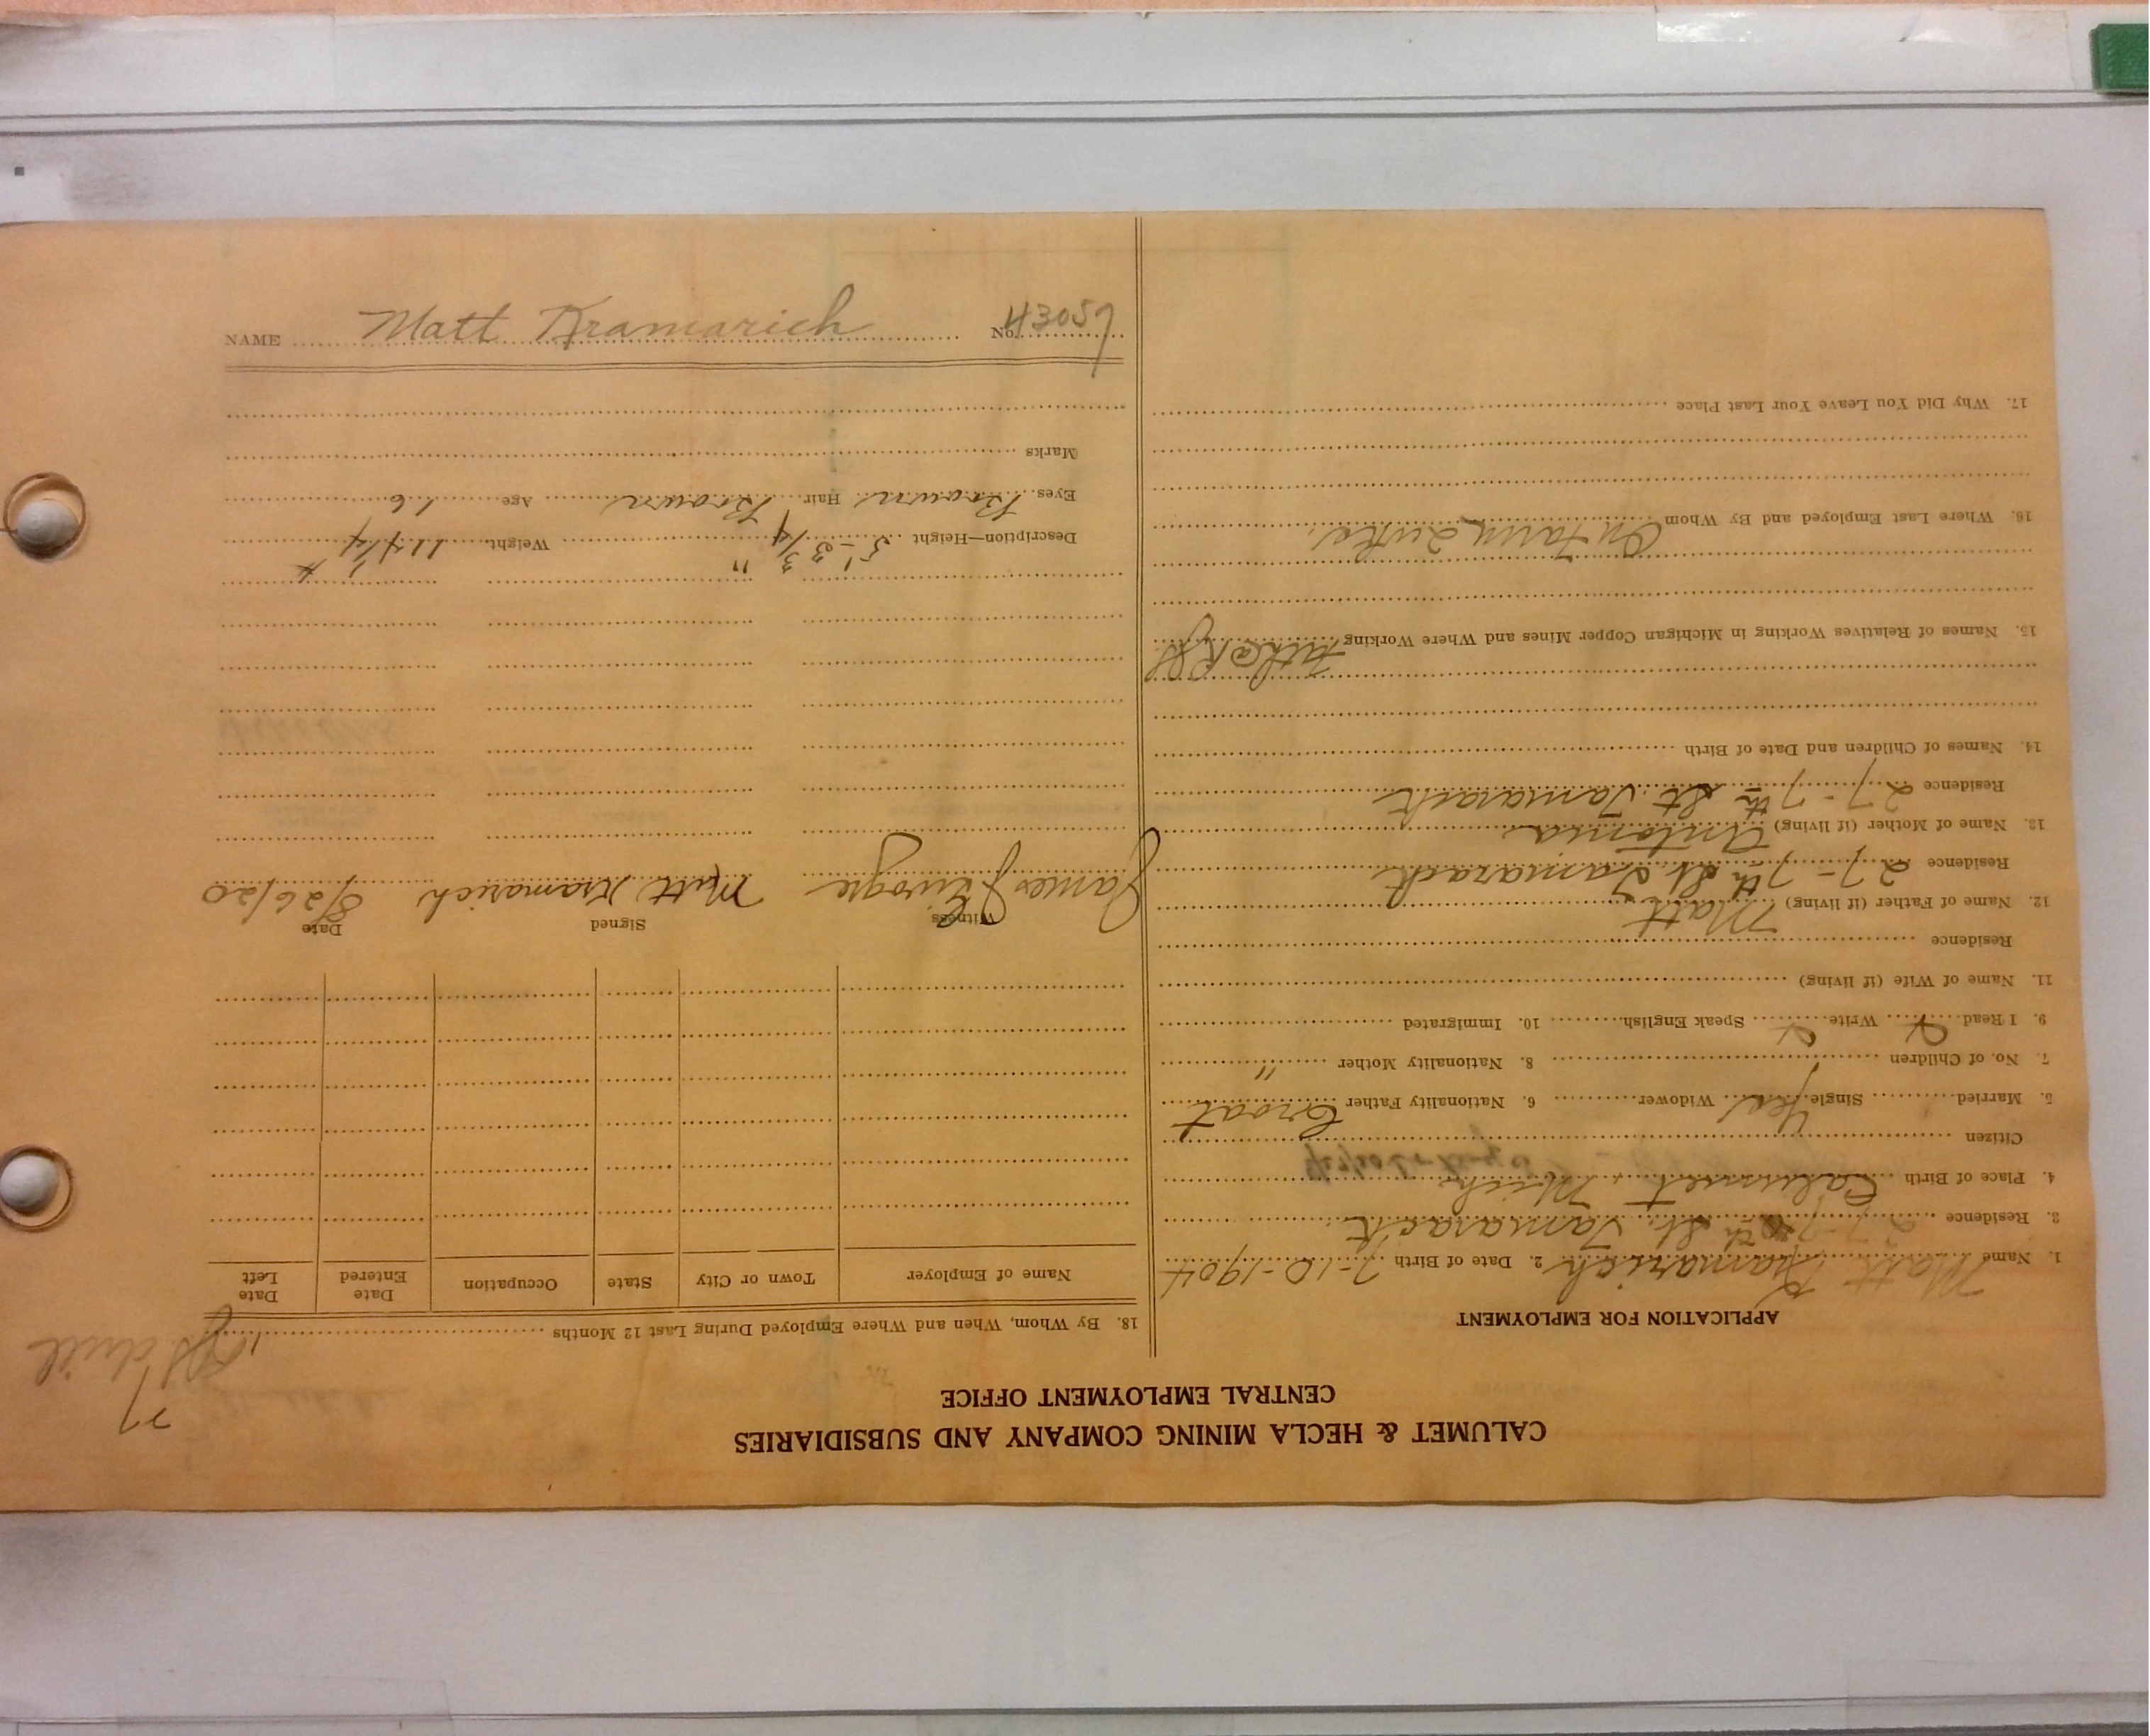 CALUMET & HECLA MINING COMPANY AND SUBSIDIARIES
CENTRAL EMPLOYMENT OFFICE
APPLICATION FOR EMPLOYMENT
1. Name Matt Kramarich 2. Date of Birth 7-10-1904
3. Residence 27-7th St. Tamarack
4. Place of Birth Calumet, Mich
Citizen
5. Married Single Yes Widower 6. Nationality Father Croat
7. No. of Children 8. Nationality Mother "
9. I Read Write Speak English 10. Immigrated
11. Name of Wife (if living)
Residence
12. Name of Father (if living) Matt
Residence 27-7th St. Tamarack
13. Name of Mother (if living) Antonia
Residence 27-7th St. Tamarack
14. Names of Children and Date of Birth
15. Names of Relatives Working in Michigan Copper Mines and Where Working
16. Where Last Employed and By Whom On Farm
17. Why Did You Leave Your Last Place
77
drill
18. By Whom, When and Where Employed During Last 12 Months
Name of Employer Town or City State Occupation Date Entered Date Left
Witness Signed Date
James Matt Kramarich 8/26/20
Description—Height 5'-3 3/4" Weight 114 1/4 #
Eyes Brown Hair Brown Age 16
Marks
NAME Matt Kramarich No. 43057